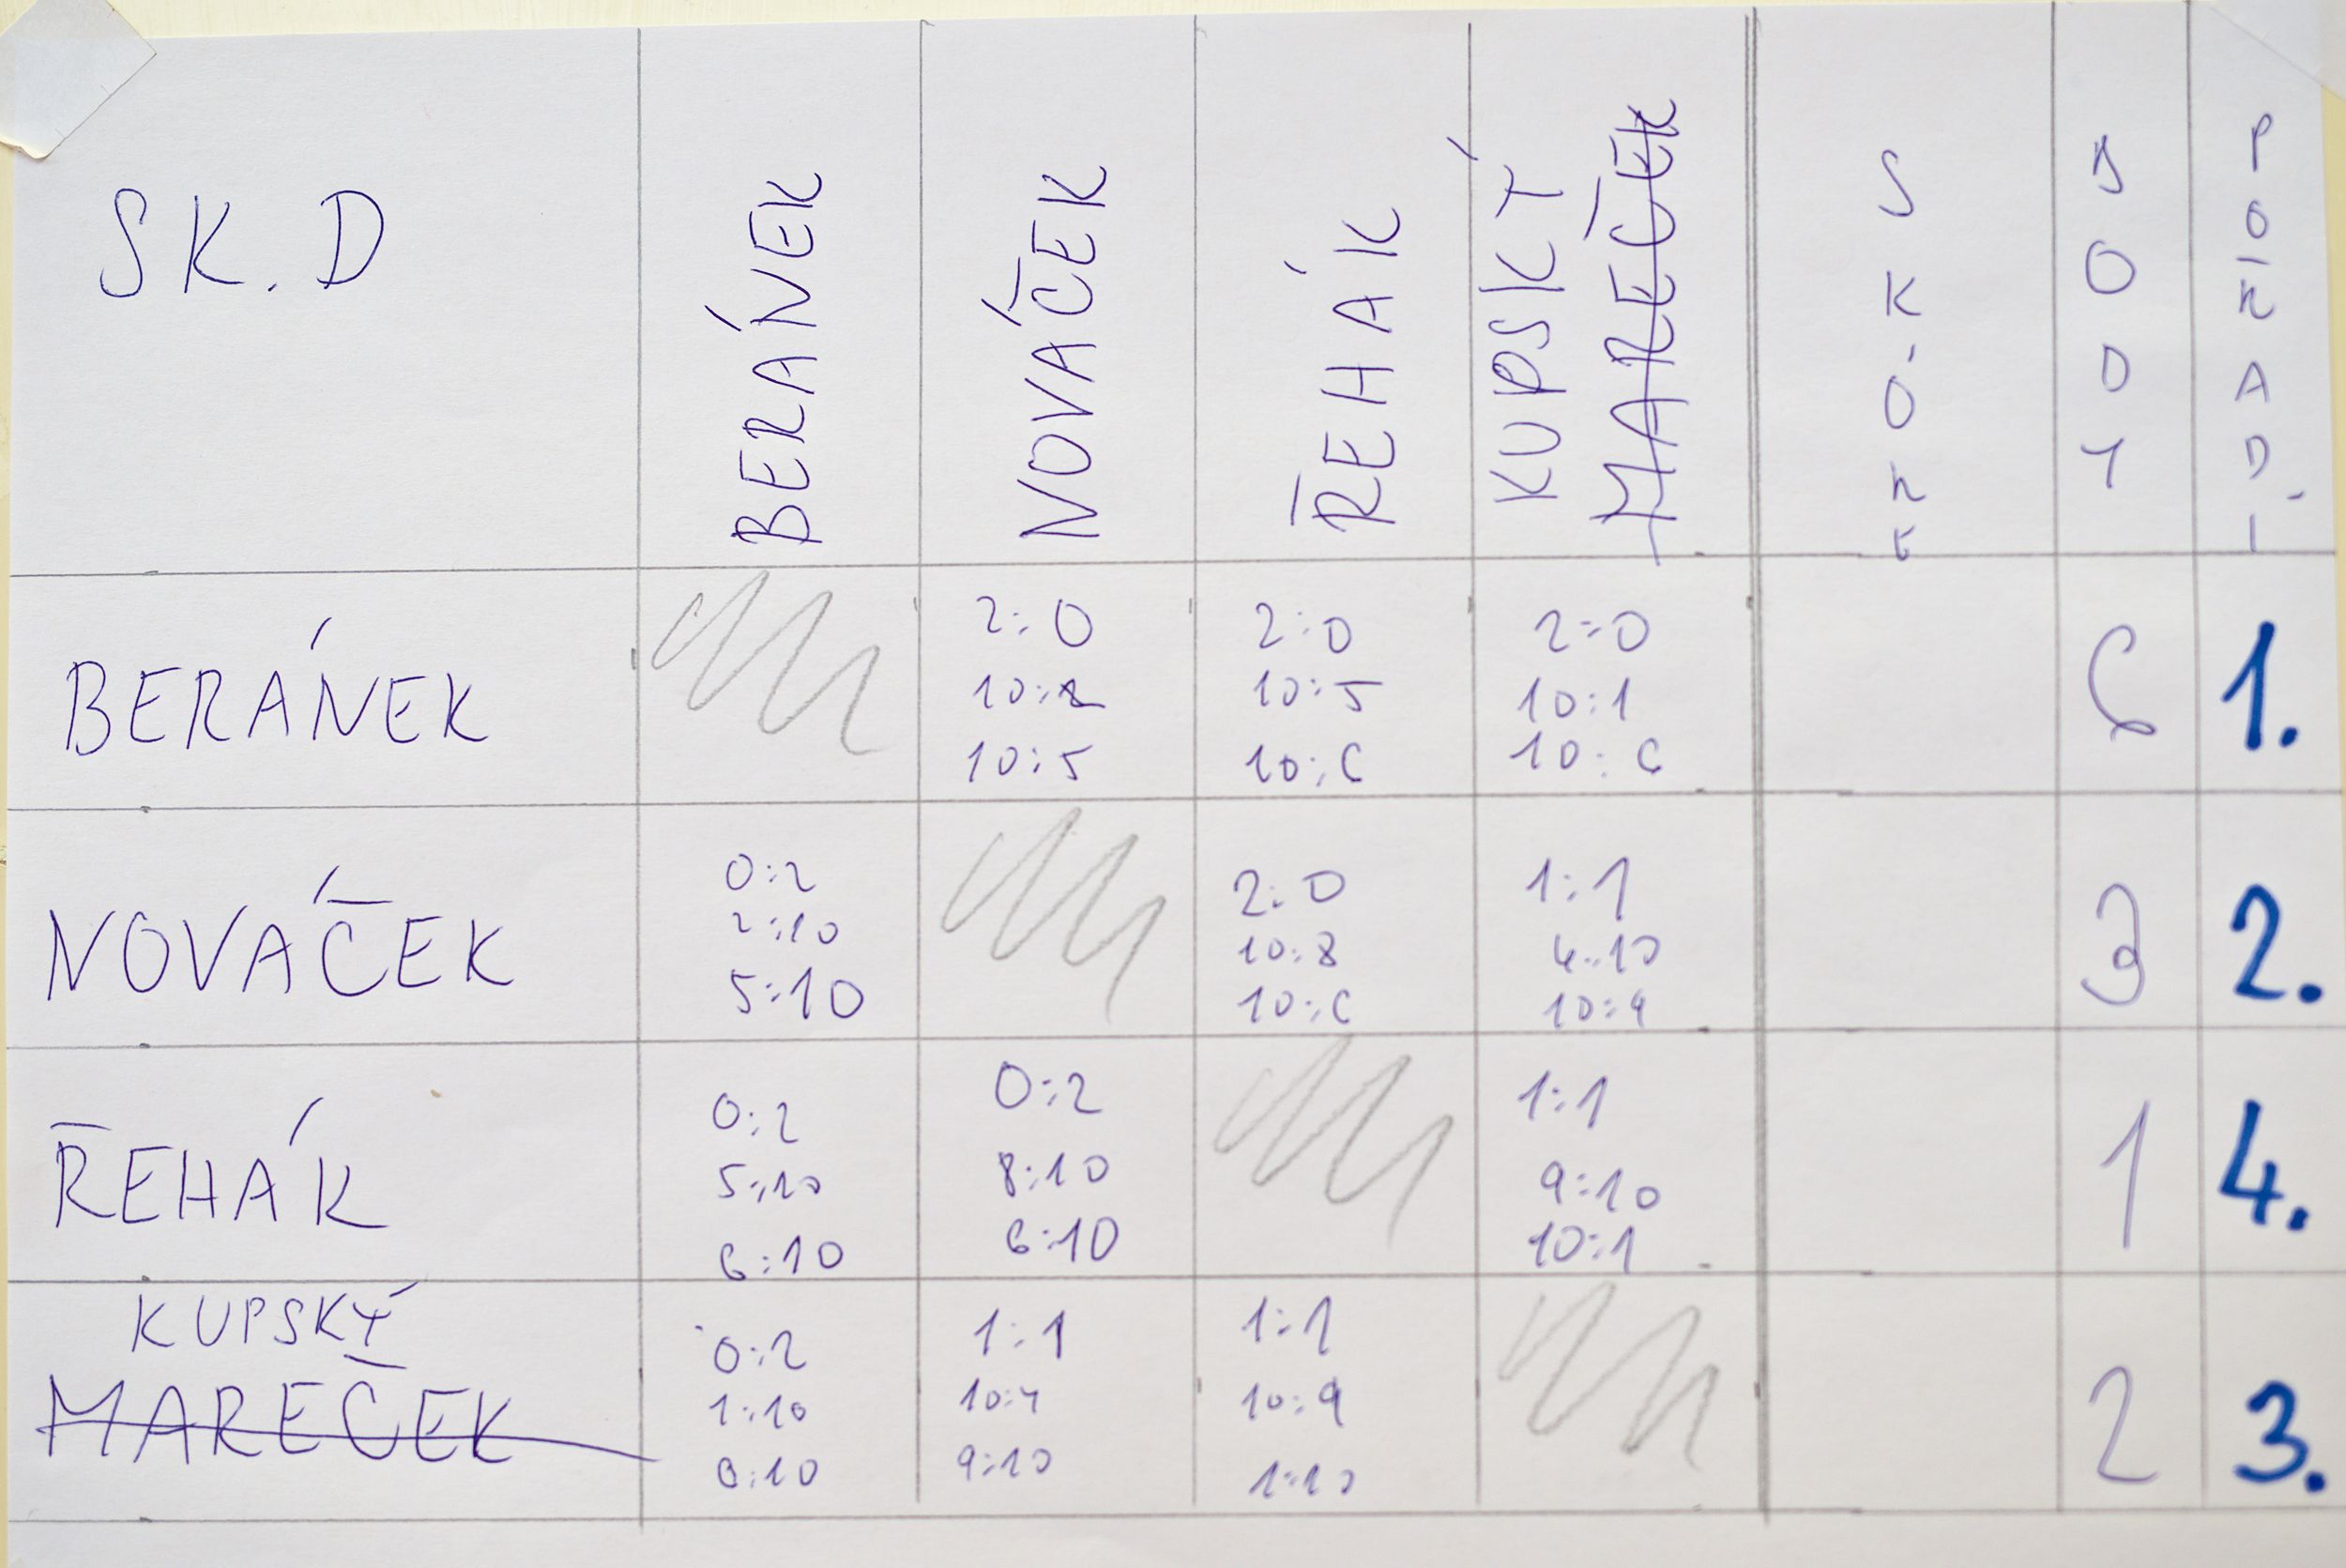 SK. D
BERÁNEK
NOVÁČEK
ŘEHÁK
KUPSKÝ
MAREČEK
SKÓRE
BODY
POŘADÍ
BERÁNEK
2:0
10:2
10:5
2:0
10:5
10:6
2:0
10:1
10:6
6
1.
NOVÁČEK
0:2
2:10
5:10
2:0
10:8
10:6
1:1
4:10
10:9
3
2.
ŘEHÁK
0:2
5:10
6:10
0:2
8:10
6:10
1:1
9:10
10:1
1
4.
KUPSKÝ
MAREČEK
0:2
1:10
1:1
10:4
9:10
1:1
10:9
1:10
2
3.